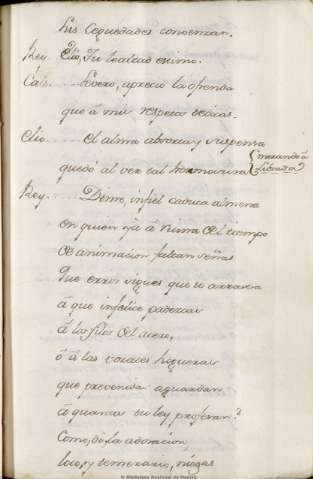 sus ceguedades condenan.
Rey. Elio, Tu lealtad estimo.
Cat. Severo, aprecio la ofrenda
que á mi respeto dedicas.
Elio. El alma absorta y suspensa
quedó al ver tal hermosura {mirando á Librada}
Rey. Dime, infiel caduca almena
en quien ya á ruina del tiempo
de animacion faltan señas
que error sigues que te arrastra
á que infelice padezcas
á los filos del acero,
ó á las voraces hogueras
que prevenidas aguardan
á quantos su ley profesan?
Como, di, la adoracion,
loco, y temerario, niegas
Biblioteca Nacional de España